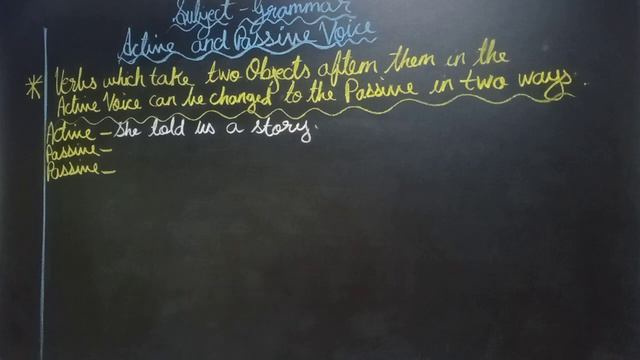 Subject - Grammar
Active and Passive Voice
* Verbs which take two Objects aftem them in the
Active Voice can be changed to the Passive in two ways.
Active - She told us a story.
Passive -
Passive -